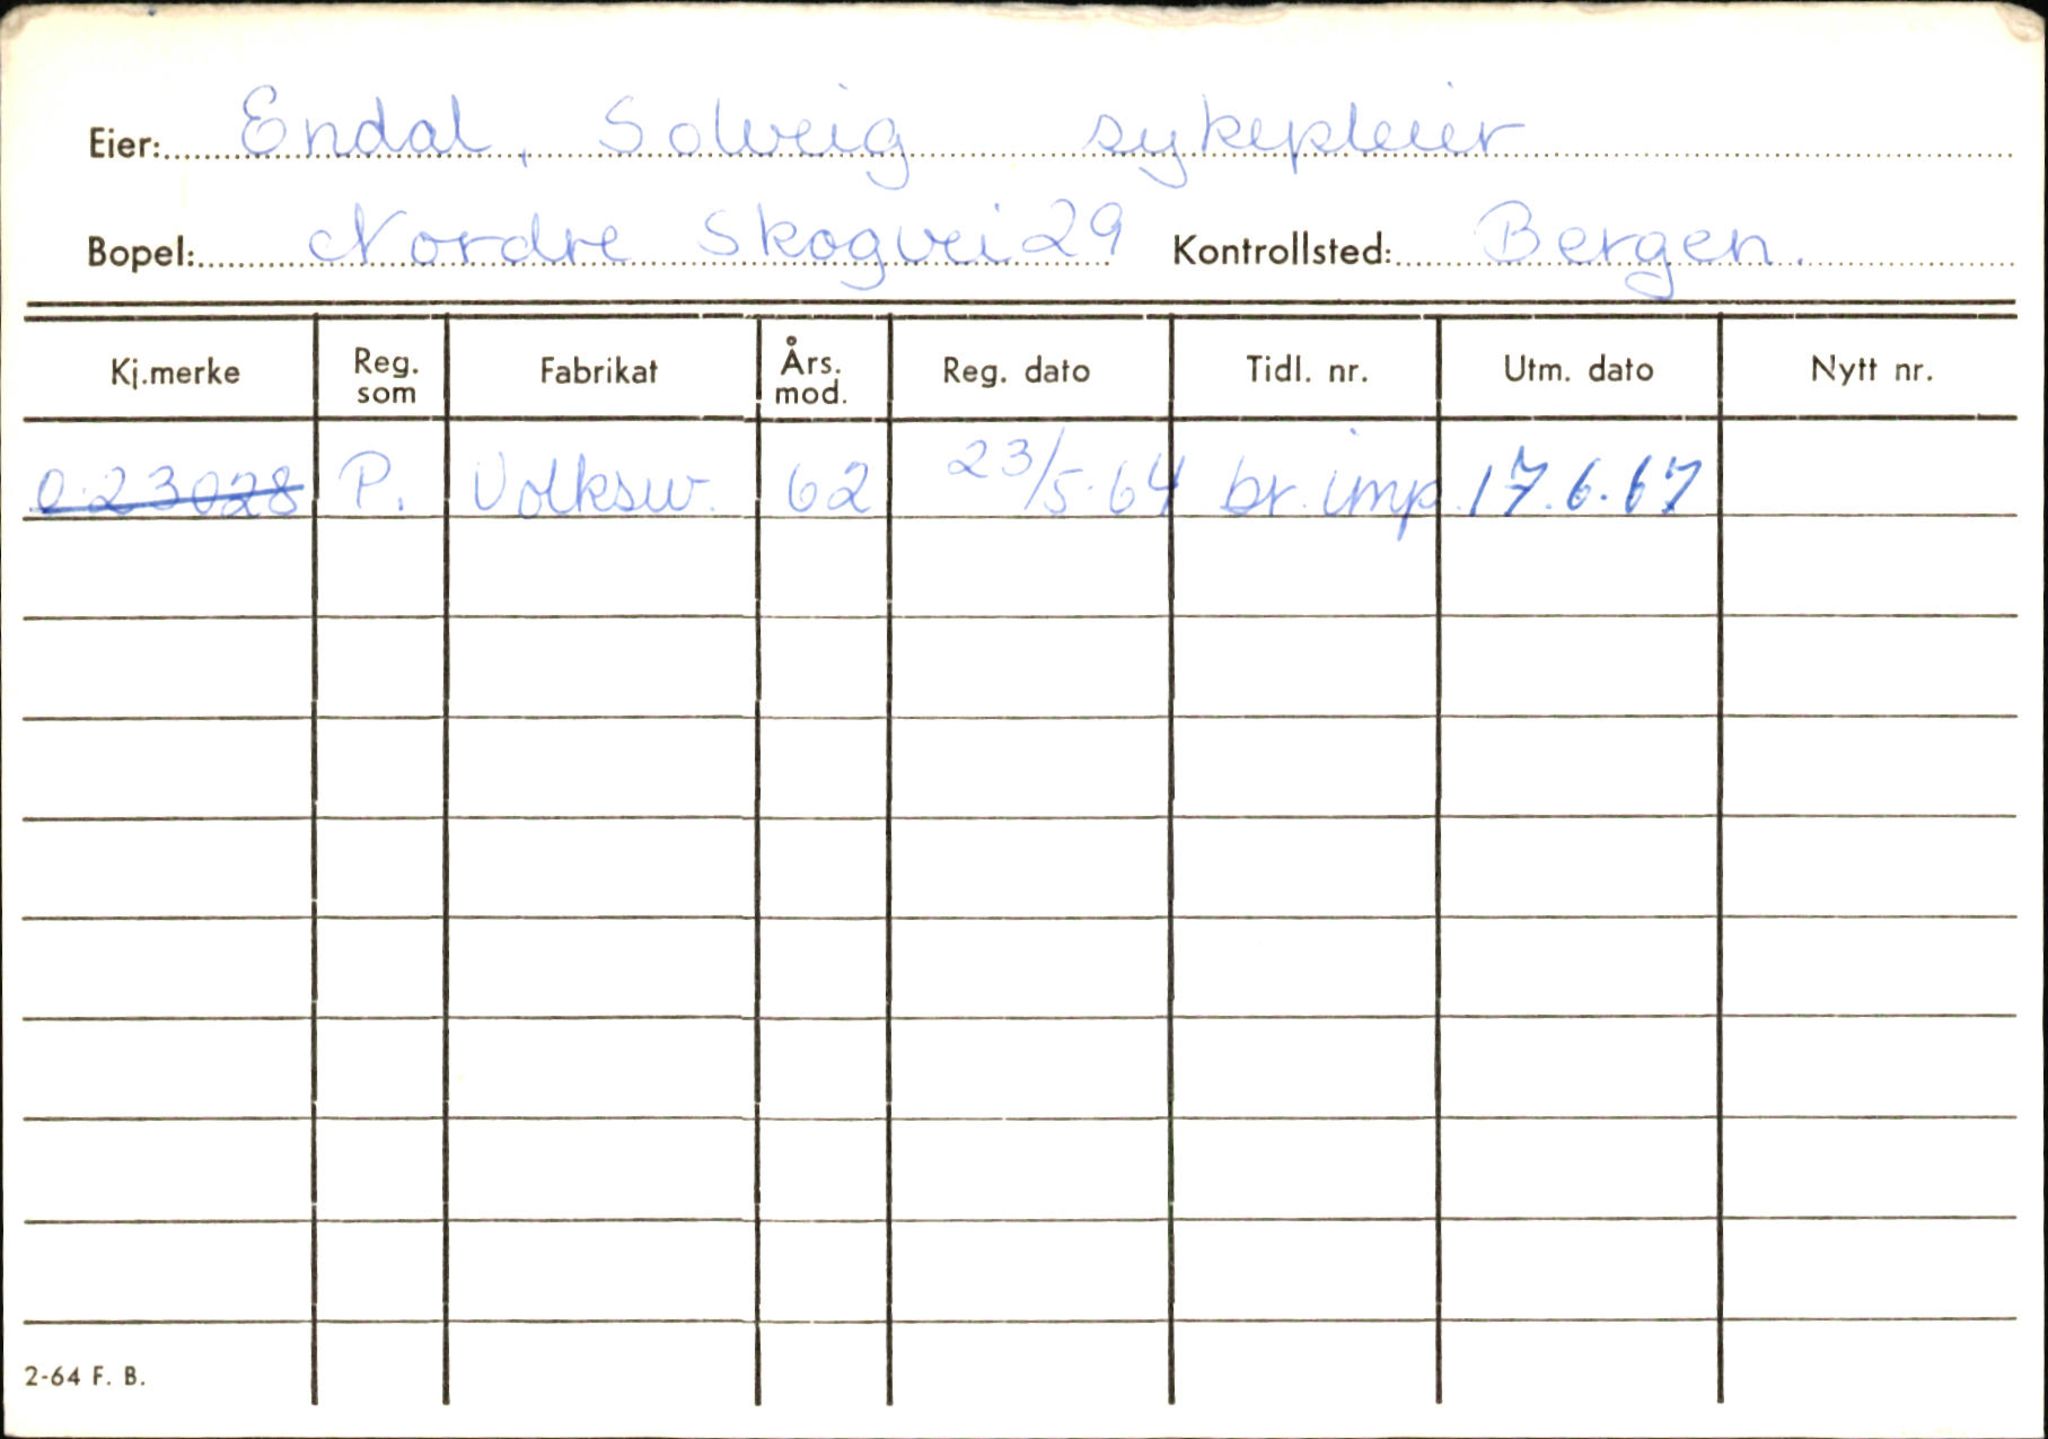 Eier: Endal, Solveig sykepleier
Bopel: Nordre Skogvei 29 Kontrollsted: Bergen.
Kj.merke Reg. som Fabrikat Års. mod. Reg. dato Tidl. nr. Utm. dato Nytt nr.
O-23028 P. Volksw. 62 23/5-64 br. imp. 17.6.67
2-64 F. B.